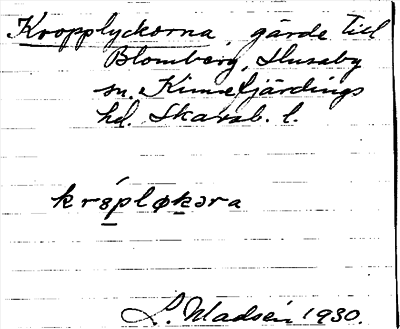 Kropplyckorna, gärde till
Blomberg, Husaby
sn. Kinnefjärdings
hd. Skarab. l.
krópløkəra
L. Madsén 1930.